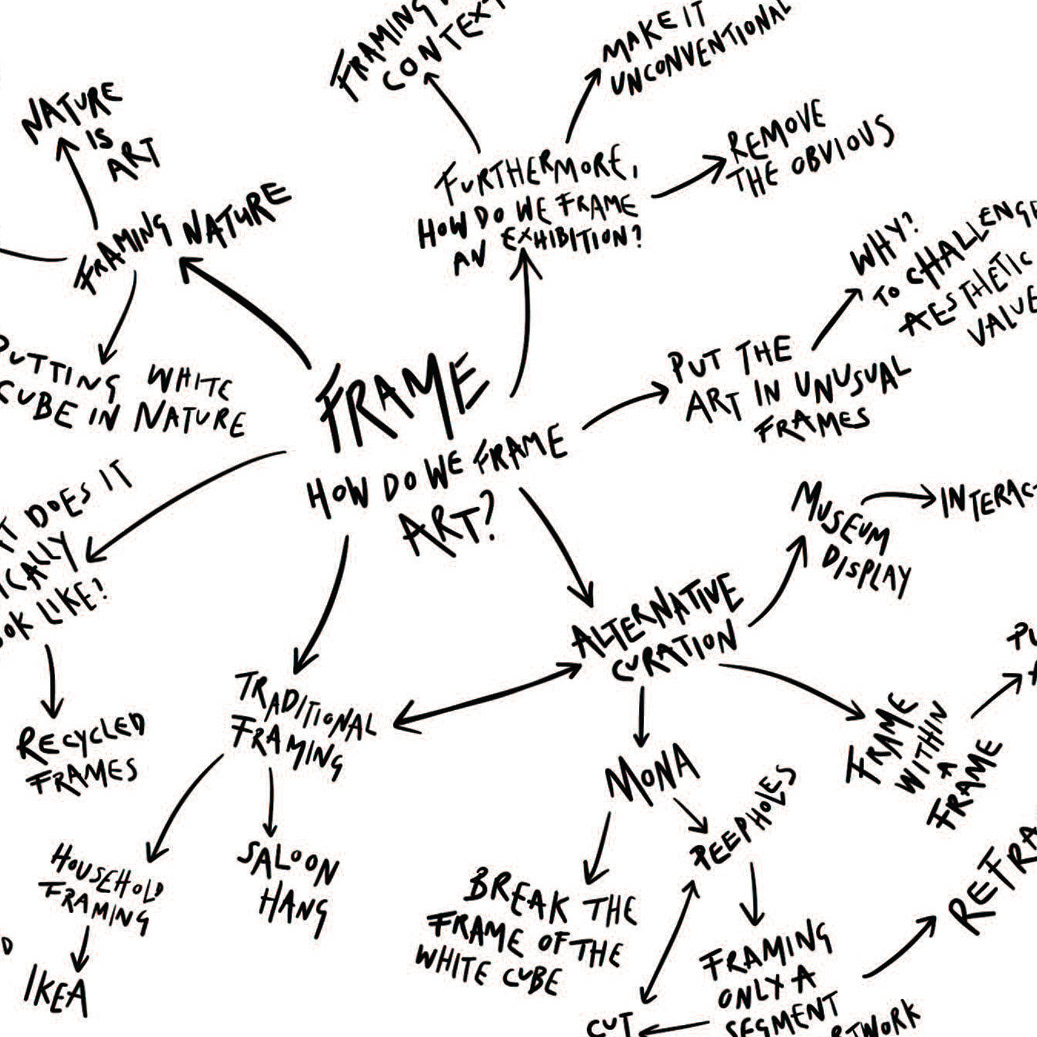 FRAMING
CONTEXT
MAKE IT
UNCONVENTIONAL
NATURE
IS
ART
FURTHERMORE,
HOW DO WE FRAME
AN EXHIBITION?
REMOVE
THE OBVIOUS
FRAMING NATURE
WHY?
TO CHALLENGE
AESTHETIC
VALUE
PUTTING WHITE
CUBE IN NATURE
FRAME
HOW DO WE FRAME
ART?
PUT THE
ART IN UNUSUAL
FRAMES
DOES IT
LIKE?
MUSEUM
DISPLAY
ALTERNATIVE
CURATION
TRADITIONAL
FRAMING
RECYCLED
FRAMES
FRAME
WITHIN
A
FRAME
MONA
PEEPHOLES
HOUSEHOLD
FRAMING
SALOON
HANG
BREAK THE
FRAME OF THE
WHITE CUBE
IKEA
FRAMING
ONLY A
SEGMENT
CUT